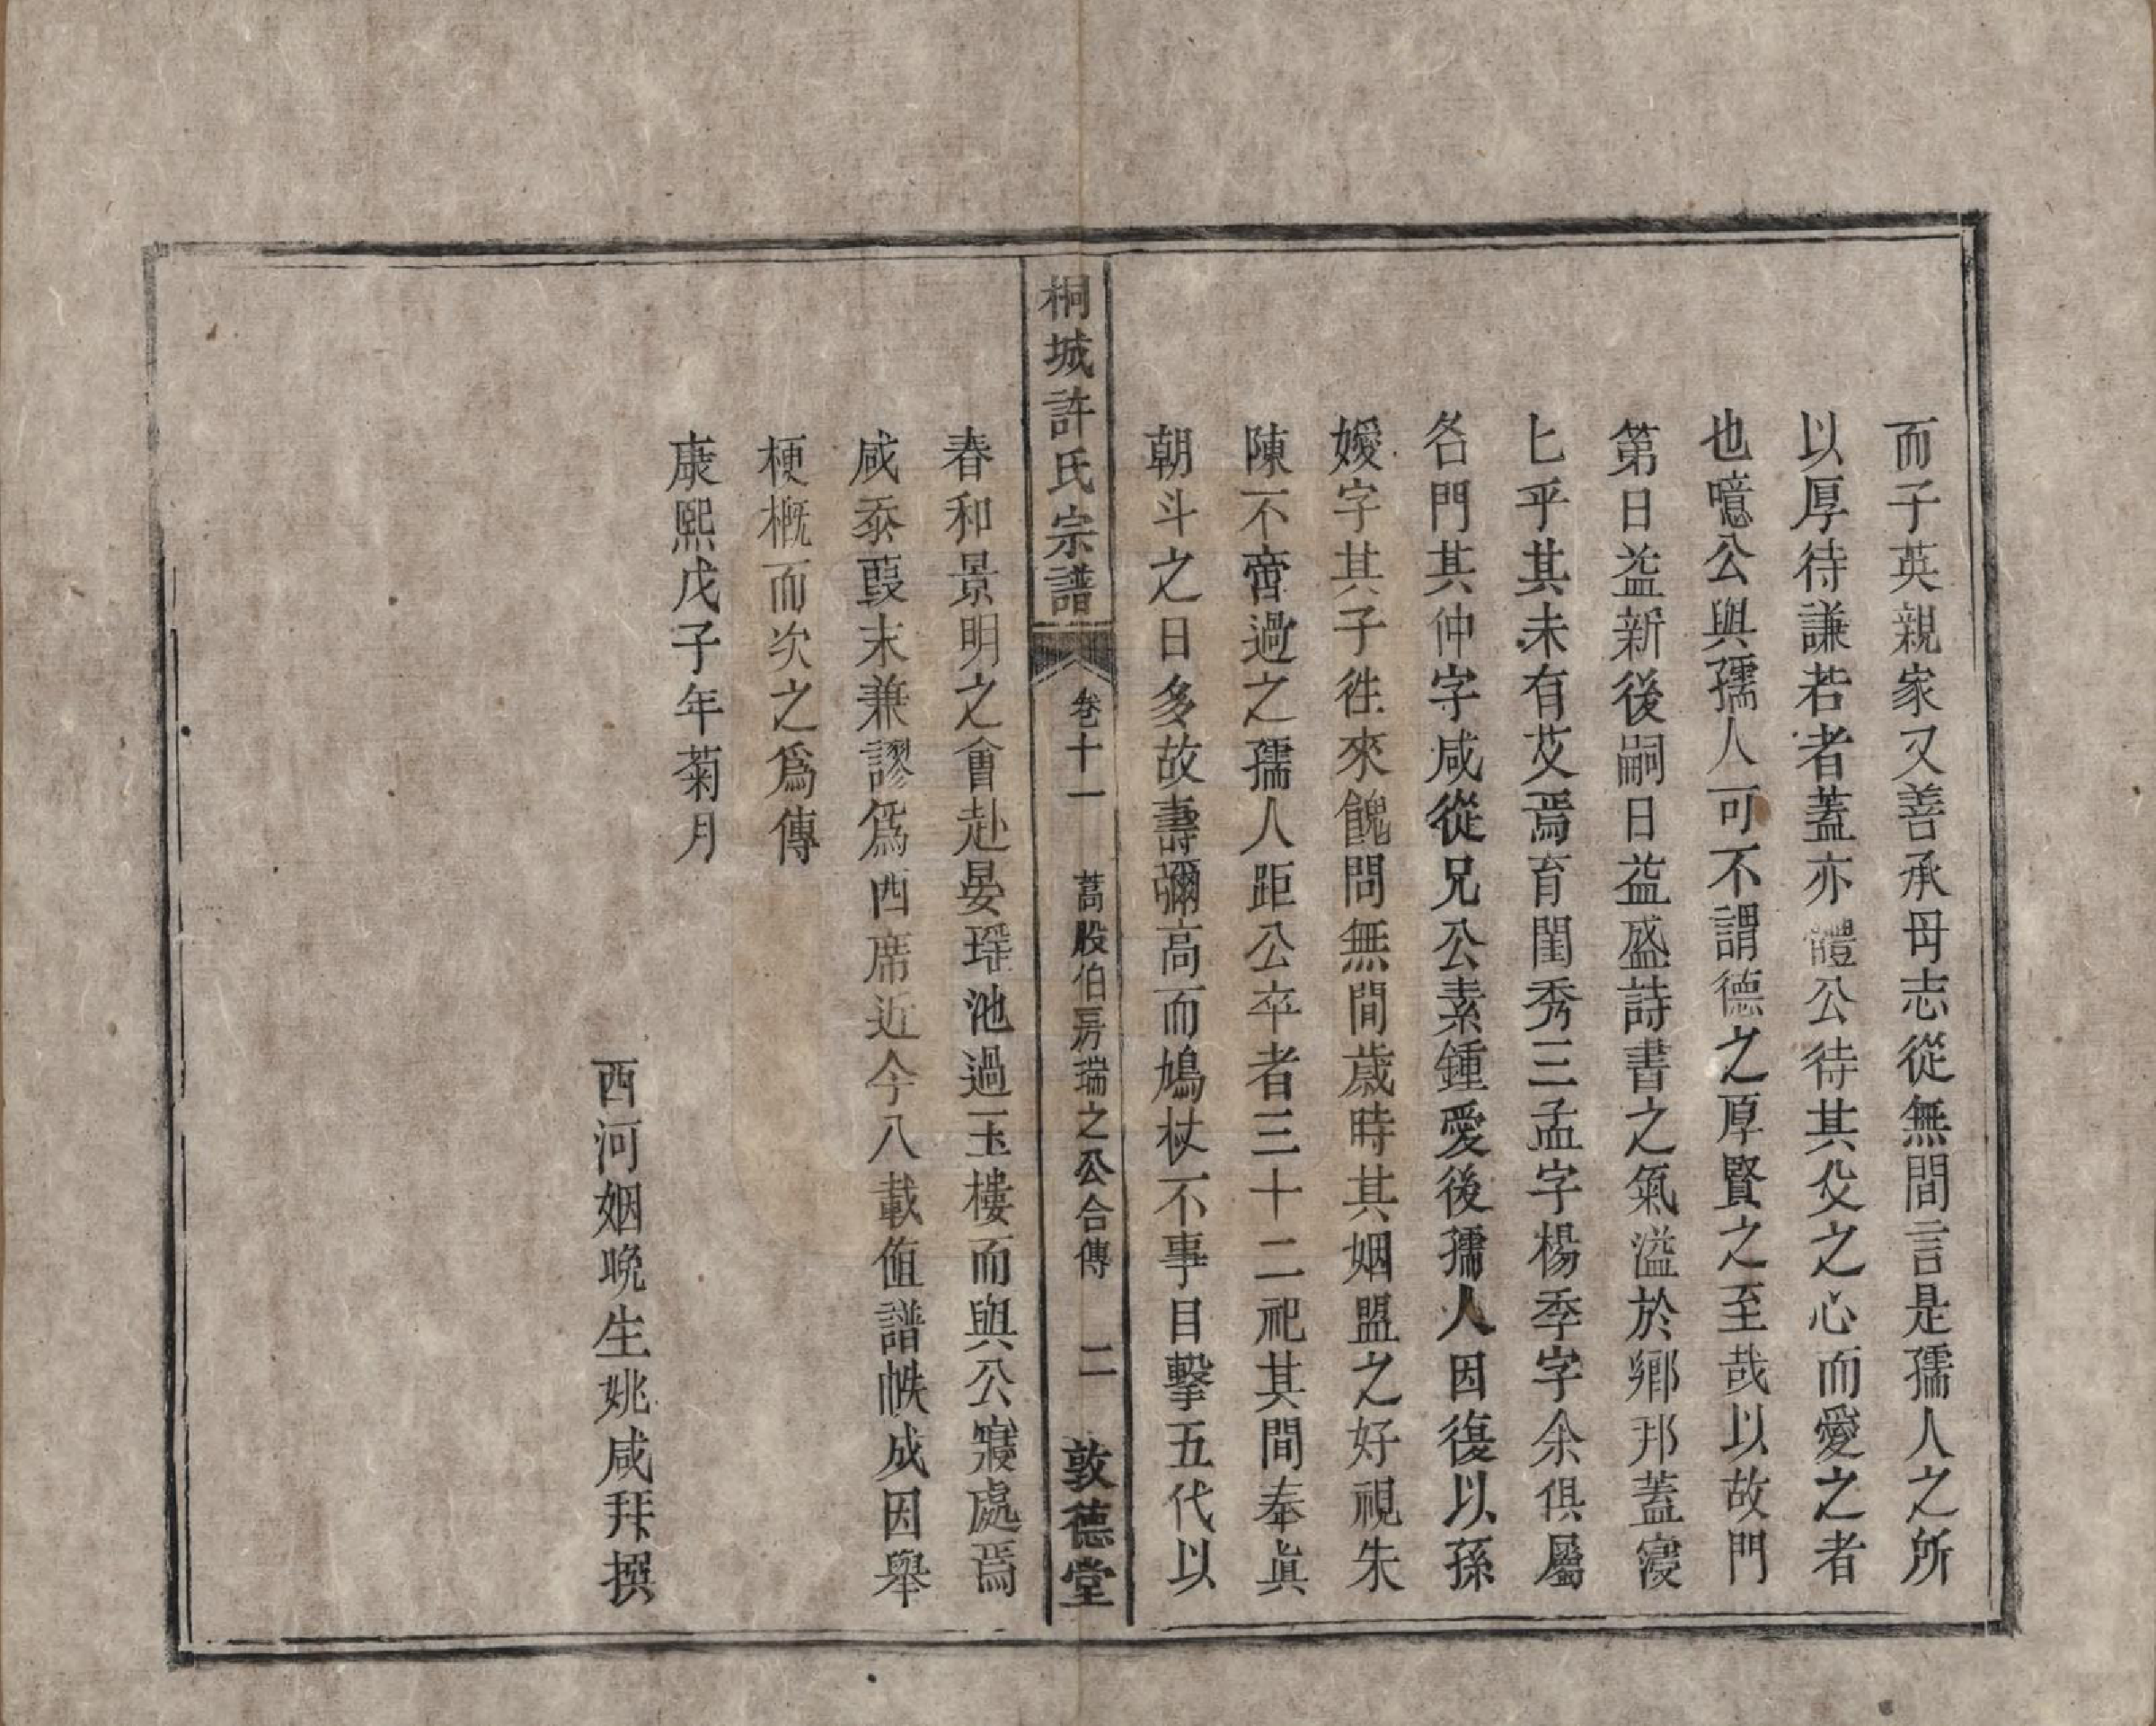 而子英親家又善承母志從無間言是孺人之所
以厚待謙若者蓋亦體公待其父之心而愛之者
也噫公與孺人可不謂德之厚賢之至哉以故門
第日益新後嗣日益盛詩書之氣溢於鄉邦蓋寖
匕乎其未有艾焉育閨秀三孟字楊季字余俱屬
各門其仲字咸從兄公素鍾愛後孺人因復以孫
嬡字其子徃來餽問無間歲時其姻盟之好視朱
陳不啻過之孺人距公卒者三十二祀其間奉眞
朝斗之日多故壽彌高而鳩杖不事目擊五代以
桐城許氏宗譜 卷十一 蒿股伯房瑞之公合傳 二 敦德堂
春和景明之會赴晏瑶池過玉樓而與公寢處焉
咸忝葭末兼謬爲西席近今八載值譜帙成因舉
梗概而次之爲傳
康熙戊子年菊月
西河姻晚生姚咸拜撰